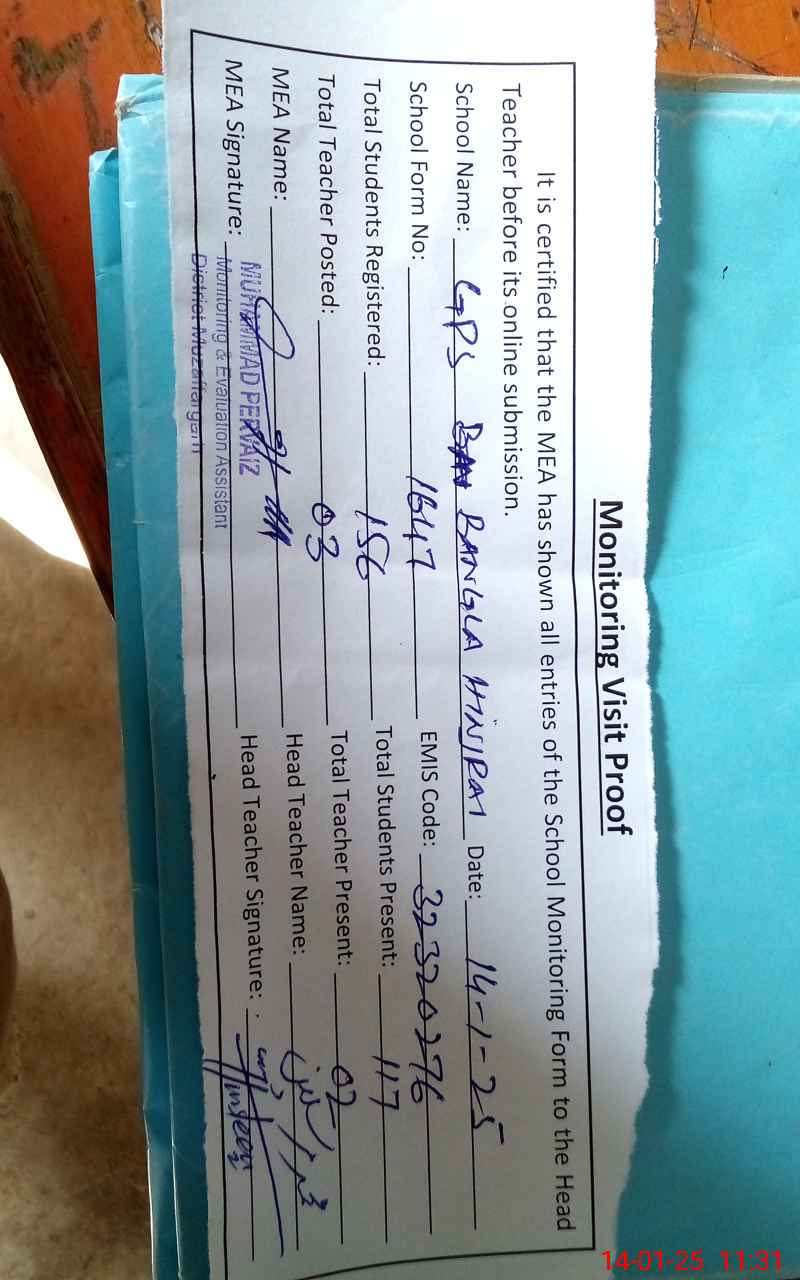 Monitoring Visit Proof
It is certified that the MEA has shown all entries of the School Monitoring Form to the Head
Teacher before its online submission.
School Name: GPS BANGLA HINJRAI Date: 14-1-25
School Form No: 1647 EMIS Code: 32320276
Total Students Registered: 156 Total Students Present: 117
Total Teacher Posted: 03 Total Teacher Present: 02
MEA Name: Head Teacher Name:
MEA Signature: Head Teacher Signature:
MUHAMMAD PERVAIZ
Monitoring & Evaluation Assistant
District Muzaffargarh
14-01-25 11:31